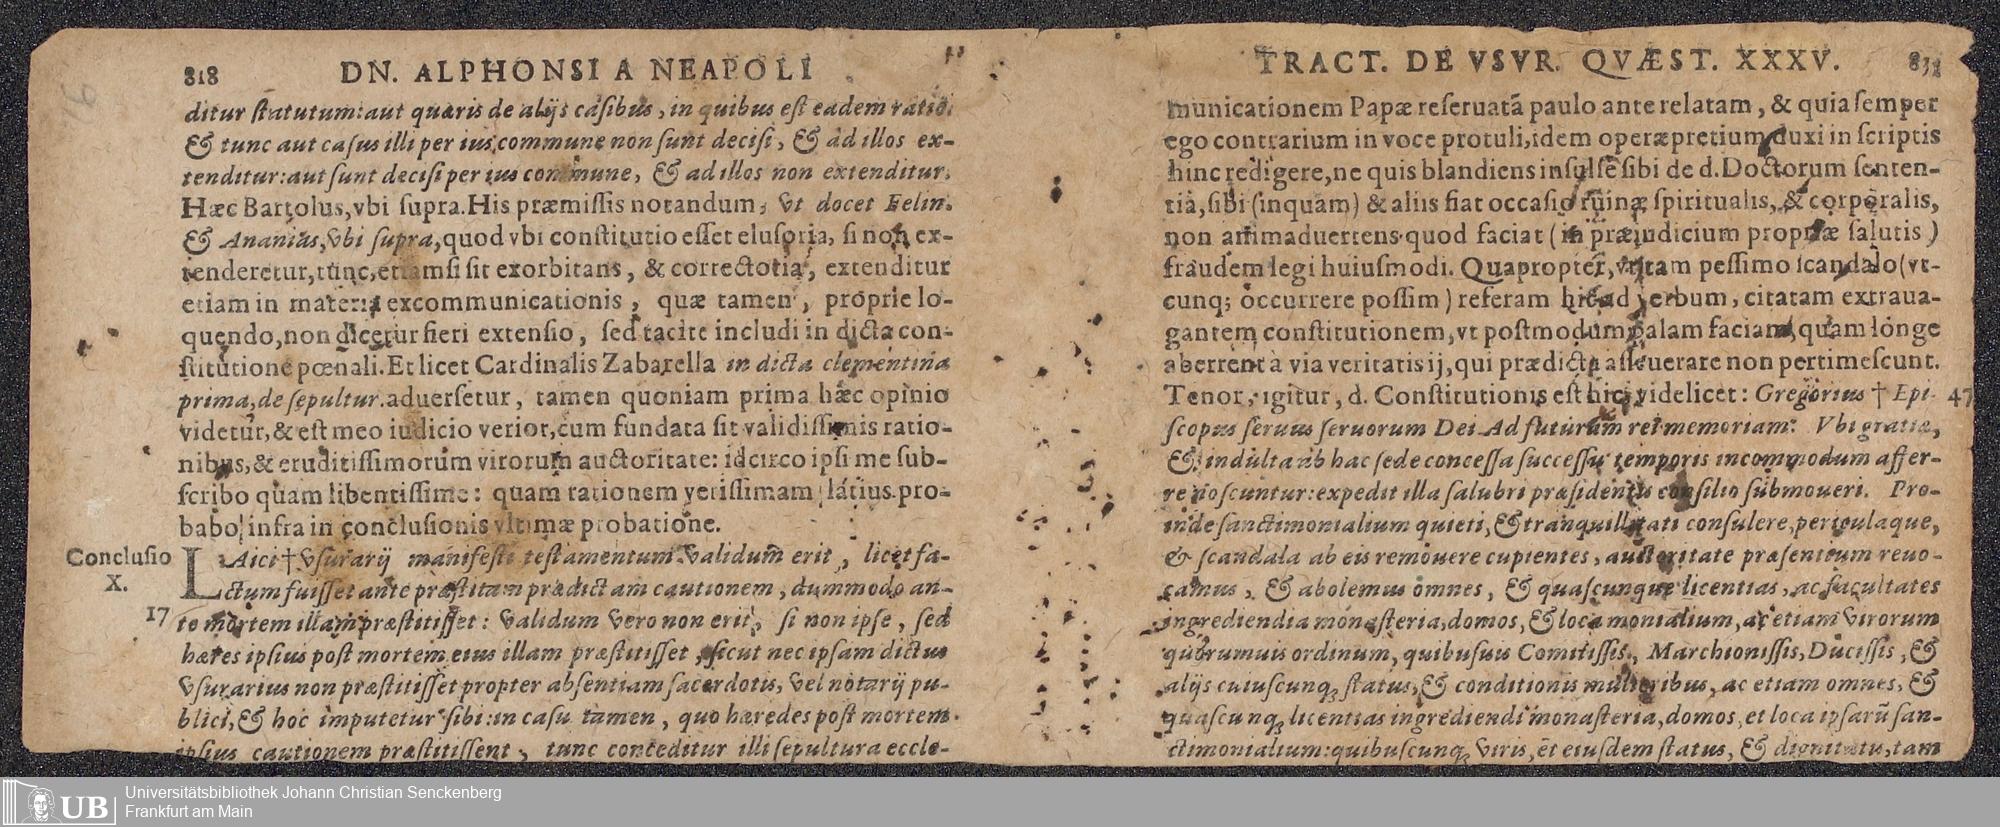 818 DN. ALPHONSI A NEAPOLI
ditur ſtatutum: aut quæris de alijs caſibus, in quibus eſt eadem ratio,
& tunc aut caſus illi per ius commune non ſunt deciſi, & ad illos ex-
tenditur: aut ſunt deciſi per ius commune, & ad illos non extenditur.
Hæc Bartolus, vbi ſupra. His præmiſſis notandum, vt docet Felin.
& Ananias, vbi ſupra, quod vbi conſtitutio eſſet eluſoria, ſi non ex-
tenderetur, tunc, etiamſi ſit exorbitans, & correctoria, extenditur
etiam in materia excommunicationis, quæ tamen, proprie lo-
quendo, non dicetur fieri extenſio, ſed tacite includi in dicta con-
ſtitutione pœnali. Et licet Cardinalis Zabarella in dicta clementina
prima, de ſepultur. aduerſetur, tamen quoniam prima hæc opinio
videtur, & eſt meo iudicio verior, cum fundata ſit validiſſimis ratio-
nibus, & eruditiſſimorum virorum auctoritate: idcirco ipſi me ſub-
ſcribo quam libentiſſime: quam rationem veriſſimam látius pro-
babo infra in concluſionis vltimæ probatione.
Concluſio X. LAici † vſurarij manifeſti teſtamentum validum erit, licet fa-
ctum fuiſſet ante præſtitam prædictam cautionem, dummodo an-
17 te mortem illam præſtitiſſet: validum vero non erit, ſi non ipſe, ſed
hæres ipſius poſt mortem eius illam præſtitiſſet, ſicut nec ipſam dictus
vſurarius non præſtitiſſet propter abſentiam ſacerdotis, vel notarij pu-
blici, & hoc imputetur ſibi: in caſu tamen, quo hæredes poſt mortem
ipſius cautionem præſtitiſſent, tunc conceditur illi ſepultura eccle-
TRACT. DE VSVR. QVÆST. XXXV.
municationem Papæ reſeruatã paulo ante relatam, & quia ſemper
ego contrarium in voce protuli, idem operæpretium duxi in ſcriptis
hinc redigere, ne quis blandiens inſulſe ſibi de d. Doctorum ſenten-
tia, ſibi (inquam) & aliis fiat occaſio ruinæ ſpiritualis, & corporalis,
non animaduertens quod faciat (in præiudicium propriæ ſalutis)
fraudem legi huiuſmodi. Quapropter, vt tam peſſimo ſcandalo (vt-
cunq; occurrere poſſim) referam hic ad verbum, citatam extraua-
gantem conſtitutionem, vt poſtmodum palam faciam, quam longe
aberrent à via veritatis ij, qui prædicta aſſeuerare non pertimeſcunt.
Tenor, igitur, d. Conſtitutionis eſt hic, videlicet: Gregorius † Epi- 47
ſcopus ſeruus ſeruorum Dei Ad futuram rei memoriam. Vbi gratiæ,
& indulta ab hac ſede conceſſa ſucceſſu temporis incommodum affer-
re noſcuntur: expedit illa ſalubri præſidentis conſilio ſubmoueri. Pro-
inde ſanctimonialium quieti, & tranquillitati conſulere, periculaque,
& ſcandala ab eis remouere cupientes, auctoritate præſentium reuo-
camus, & abolemus omnes, & quaſcunque licentias, ac facultates
ingrediendi a monaſteria, domos, & loca monialium, ac etiam virorum
quorumuis ordinum, quibuſuis Comitiſſis, Marchioniſſis, Duciſſis, &
alijs cuiuſcunq; ſtatus, & conditionis mulieribus, ac etiam omnes, &
quaſcunq; licentias ingrediendi monaſteria, domos, et loca ipſarũ ſan-
ctimonialium: quibuſcunq; viris, et eiuſdem ſtatus, & dignitatis, tam
Universitätsbibliothek Johann Christian Senckenberg
UB Frankfurt am Main